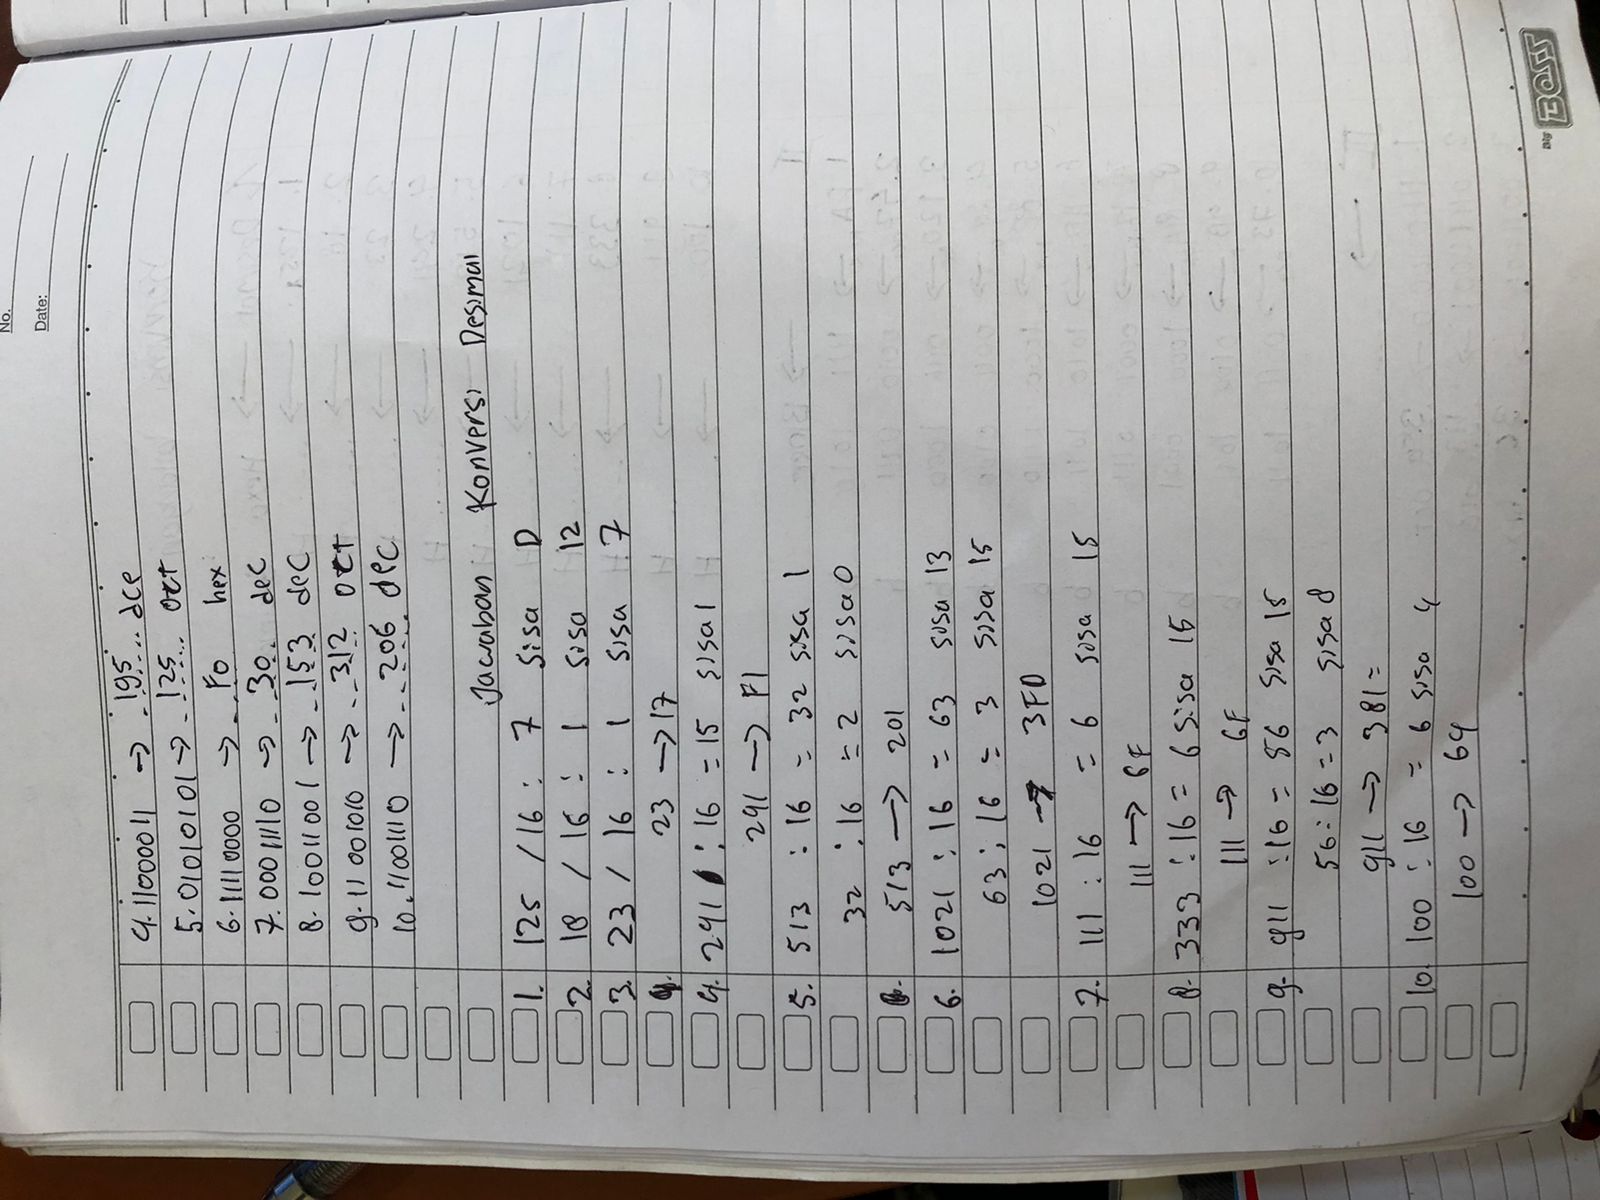 No.
Date:
4. 11000011 → 195 dce
5. 01010101 → 125 oct
6. 11110000 → F0 hex
7. 00011110 → 30 dec
8. 10011001 → 153 dec
9. 11001010 → 312 oct
10. 11001110 → 206 dec
Jawaban Konversi Desimal
1. 125 / 16 : 7 Sisa D
2. 18 / 16 : 1 Sisa 12
3. 23 / 16 : 1 Sisa 7
23 → 17
4. 241 : 16 = 15 sisa 1
241 → F1
5. 513 : 16 = 32 sisa 1
32 : 16 = 2 sisa 0
513 → 201
6. 1021 : 16 = 63 sisa 13
63 : 16 = 3 sisa 15
1021 → 3FD
7. 111 : 16 = 6 sisa 15
111 → 6F
8. 333 : 16 = 6 sisa 15
111 → 6F
9. 911 : 16 = 56 sisa 15
56 : 16 = 3 sisa 8
911 → 381 =
10. 100 : 16 = 6 sisa 4
100 → 64
BOSS